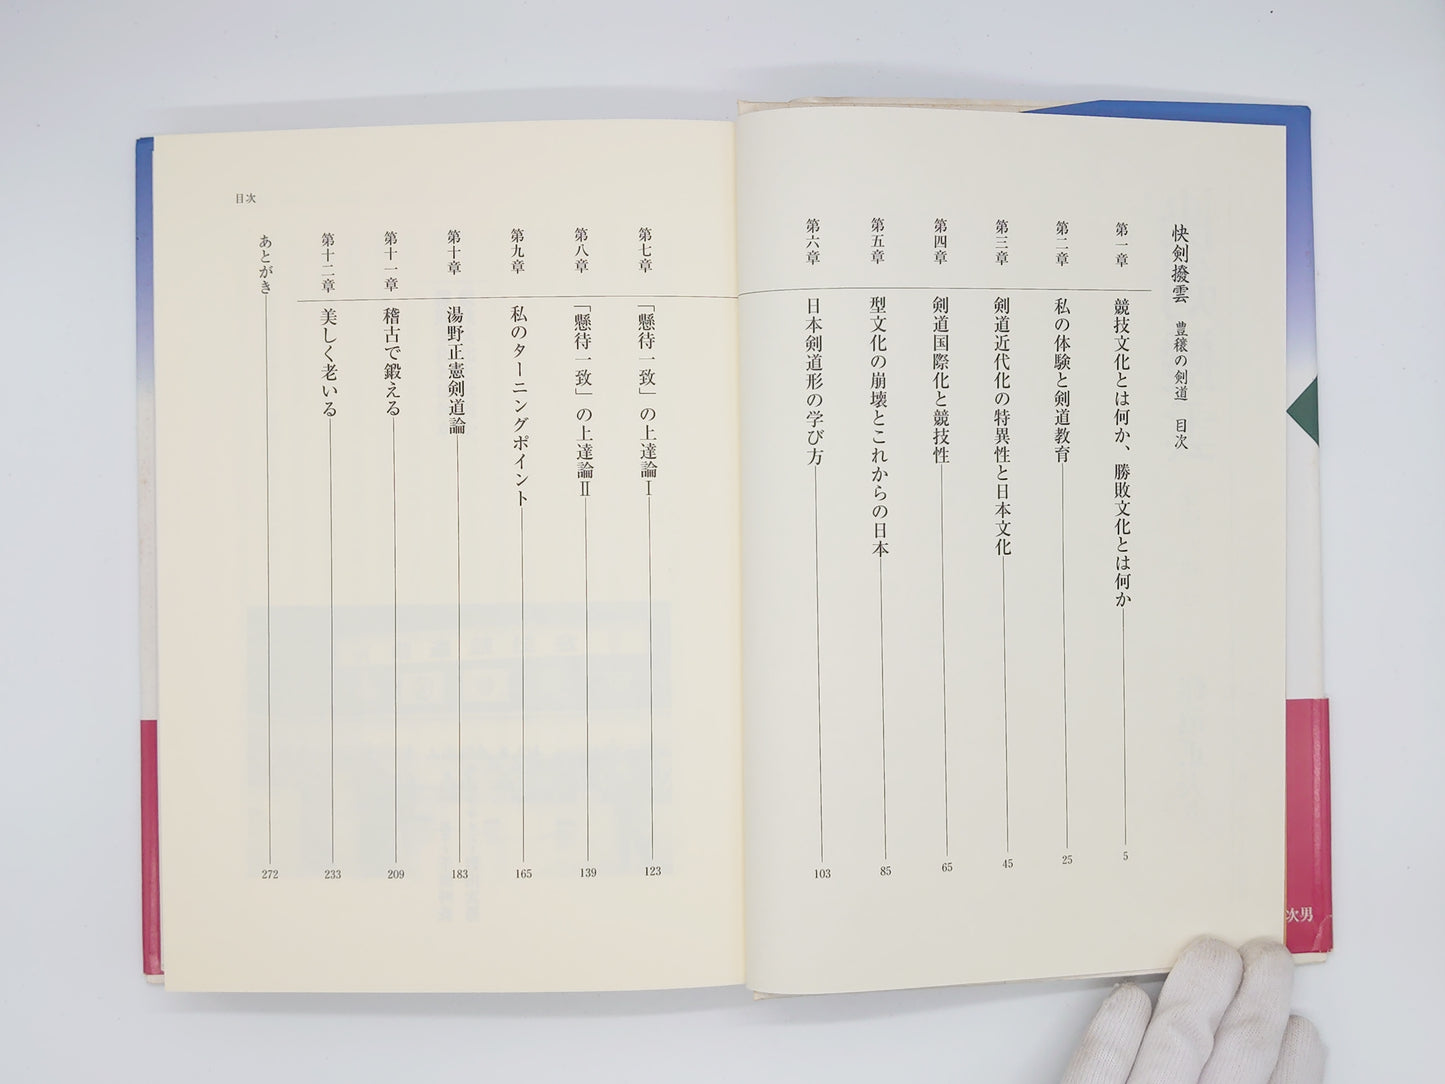 快剣撥雲　豊穣の剣道　目次
第一章　競技文化とは何か、勝敗文化とは何か　5
第二章　私の体験と剣道教育　25
第三章　剣道近代化の特異性と日本文化　45
第四章　剣道国際化と競技性　65
第五章　型文化の崩壊とこれからの日本　85
第六章　日本剣道形の学び方　103
第七章　「懸待一致」の上達論Ⅰ　123
第八章　「懸待一致」の上達論Ⅱ　139
第九章　私のターニングポイント　165
第十章　湯野正憲剣道論　183
第十一章　稽古で鍛える　209
第十二章　美しく老いる　233
あとがき　272
目次
次男